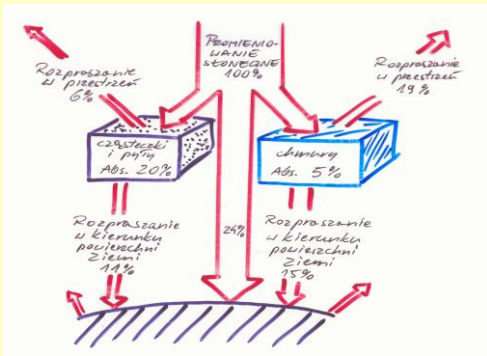 PROMIENIO-
WANIE
SŁONECZNE
100%
Rozpraszanie
w przestrzeń
6%
Rozpraszanie
w przestrzeń
19%
cząsteczki
i pyły
Abs. 20%
chmury
Abs. 5%
24%
Rozpraszanie
w kierunku
powierzchni
Ziemi
11%
Rozpraszanie
w kierunku
powierzchni
Ziemi
15%